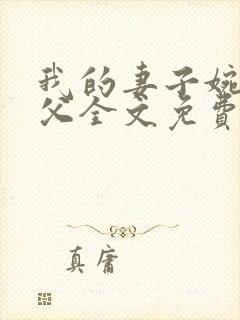 我的妻子婉
父全文免費
真庸